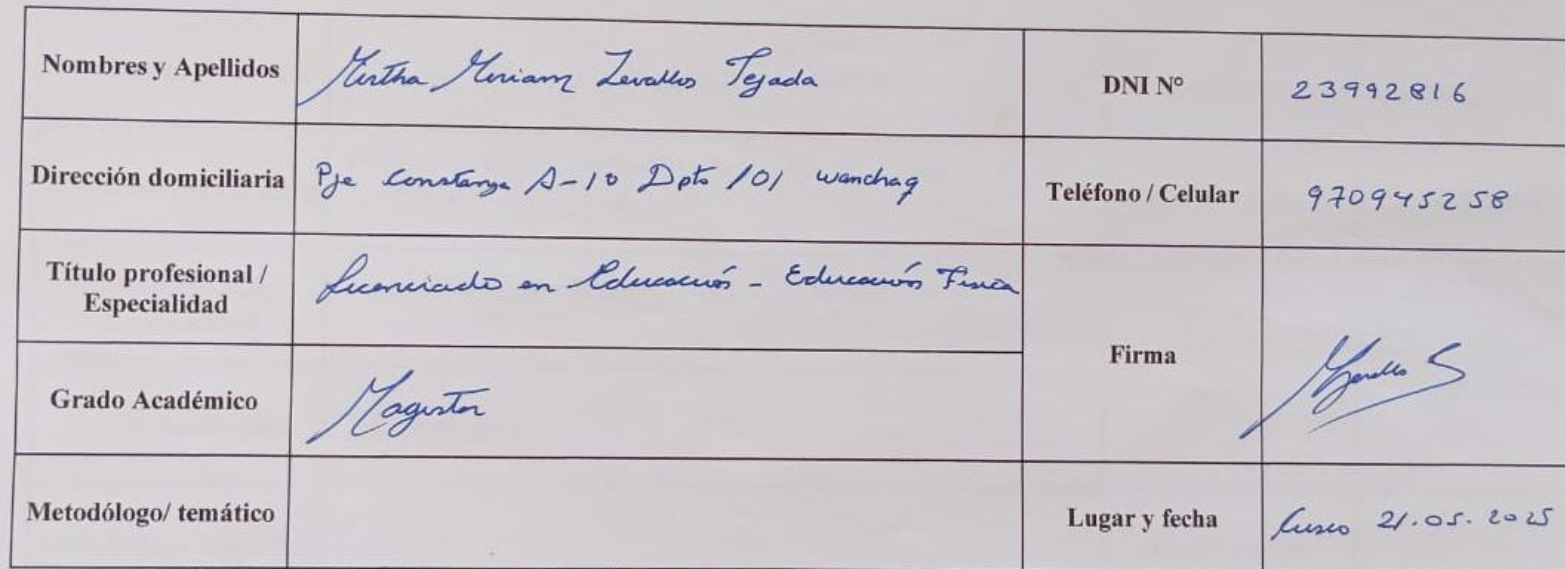 Nombres y Apellidos
Mirtha Miriam Zevallos Tejada
DNI Nº
23992816
Dirección domiciliaria
Pje Constanza A-10 Dpto 101 Wanchaq
Teléfono / Celular
970945258
Título profesional /
Especialidad
Licenciado en Educación - Educación Física
Firma
Grado Académico
Magister
Metodólogo/ temático
Lugar y fecha
Cusco 21.05.2025